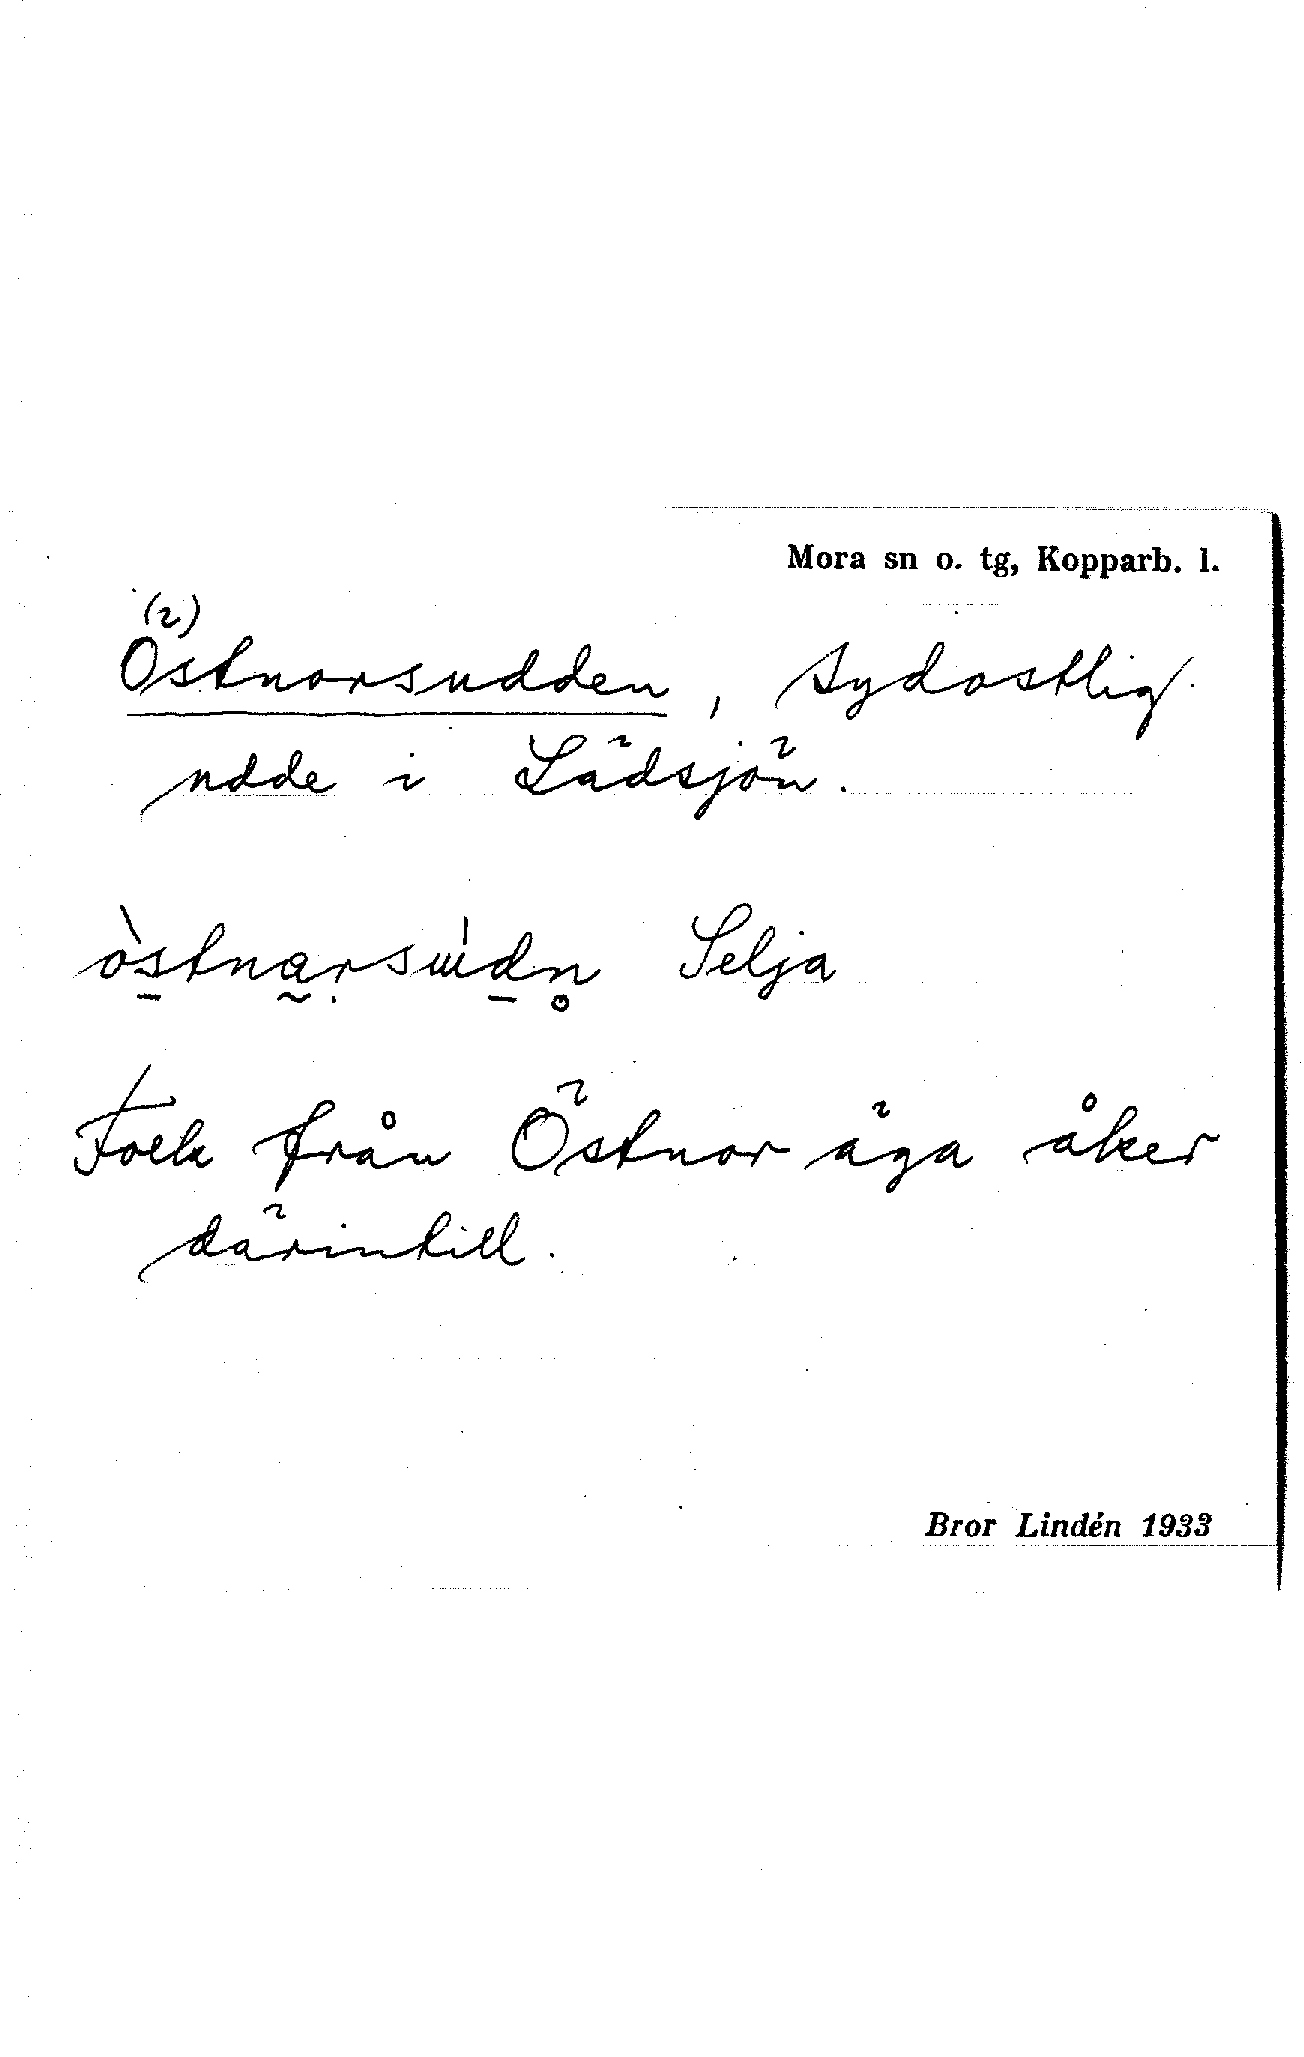 Mora sn o. tg, Kopparb. l.
(2)
Östnorsudden, sydostlig
udde i Lädsjön.
òstnarsɯ́dn̥ Selja
Folk från Östnor äga åker
därintill.
Bror Lindén 1933